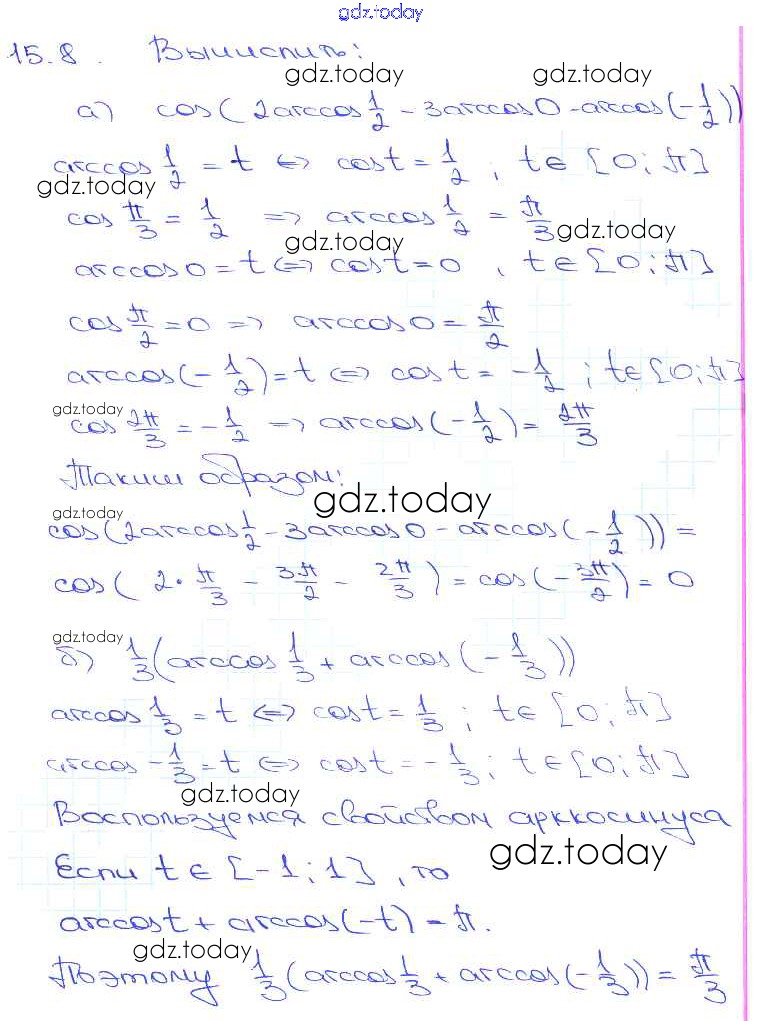 gdz.today
15.8. Вычислить:
gdz.today gdz.today
а) cos(2arccos 1/2 - 3arccos0 - arccos(-1/2))
arccos 1/2 = t ⇔ cost = 1/2 ; t∈[0; π]
gdz.today
cos π/3 = 1/2 => arccos 1/2 = π/3
gdz.today gdz.today
arccos0 = t ⇔ cost = 0 , t∈[0; π]
cos π/2 = 0 => arccos0 = π/2
arccos(-1/2) = t ⇔ cost = -1/2 ; t∈[0; π]
gdz.today
cos 2π/3 = -1/2 => arccos(-1/2) = 2π/3
Таким образом:
gdz.today
gdz.today
cos(2arccos 1/2 - 3arccos0 - arccos(-1/2)) =
cos(2·π/3 - 3π/2 - 2π/3) = cos(-3π/2) = 0
gdz.today
б) 1/3(arccos 1/3 + arccos(-1/3))
arccos 1/3 = t ⇔ cost = 1/3 ; t∈[0; π]
arccos -1/3 = t ⇔ cost = -1/3 ; t∈[0; π]
gdz.today
Воспользуемся свойством арккосинуса
gdz.today
Если t∈[-1; 1], то
arccost + arccos(-t) = π.
gdz.today
Поэтому 1/3(arccos 1/3 + arccos(-1/3)) = π/3